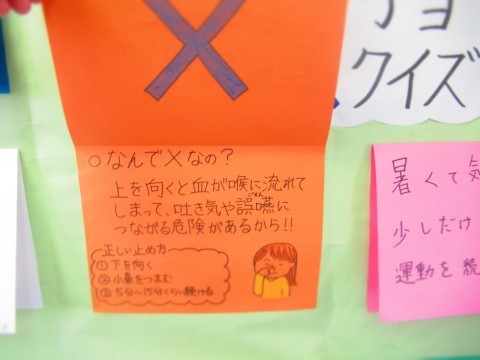 クイズ
○なんで×なの?
上を向くと血が喉に流れて
しまって、吐き気や誤嚥に
つながる危険があるから!!
正しい止め方
①下を向く
②小鼻をつまむ
③5分~15分くらい続ける
暑くて
少しだけ
運動を続